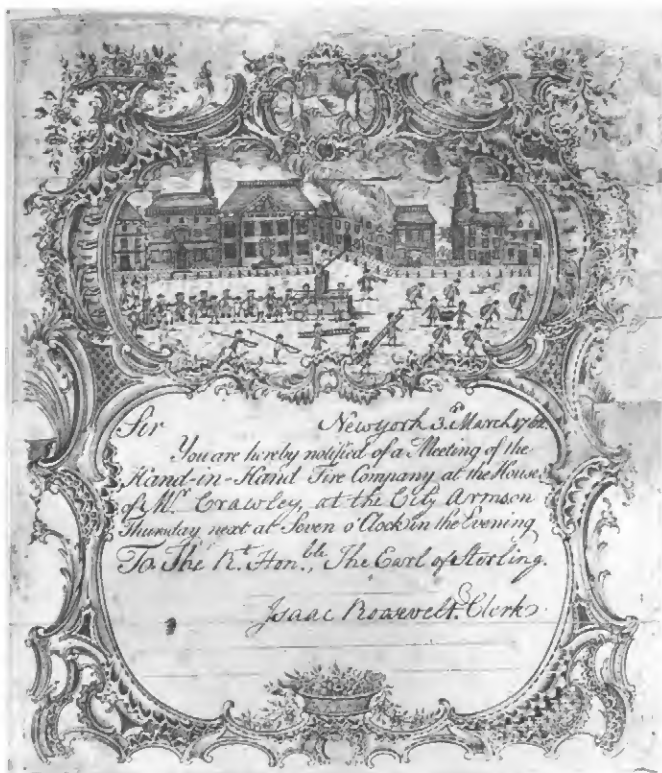 Sir Newyork 3.d March 1762.
You are hereby notified of a Meeting of the
Hand-in-Hand Fire Company at the House
of Mr. Crawley, at the City Arms on
Thursday next at Seven o'Clock in the Evening
To The Rt. Honble., The Earl of Sterling.
Isaac Roosevelt. Clerk